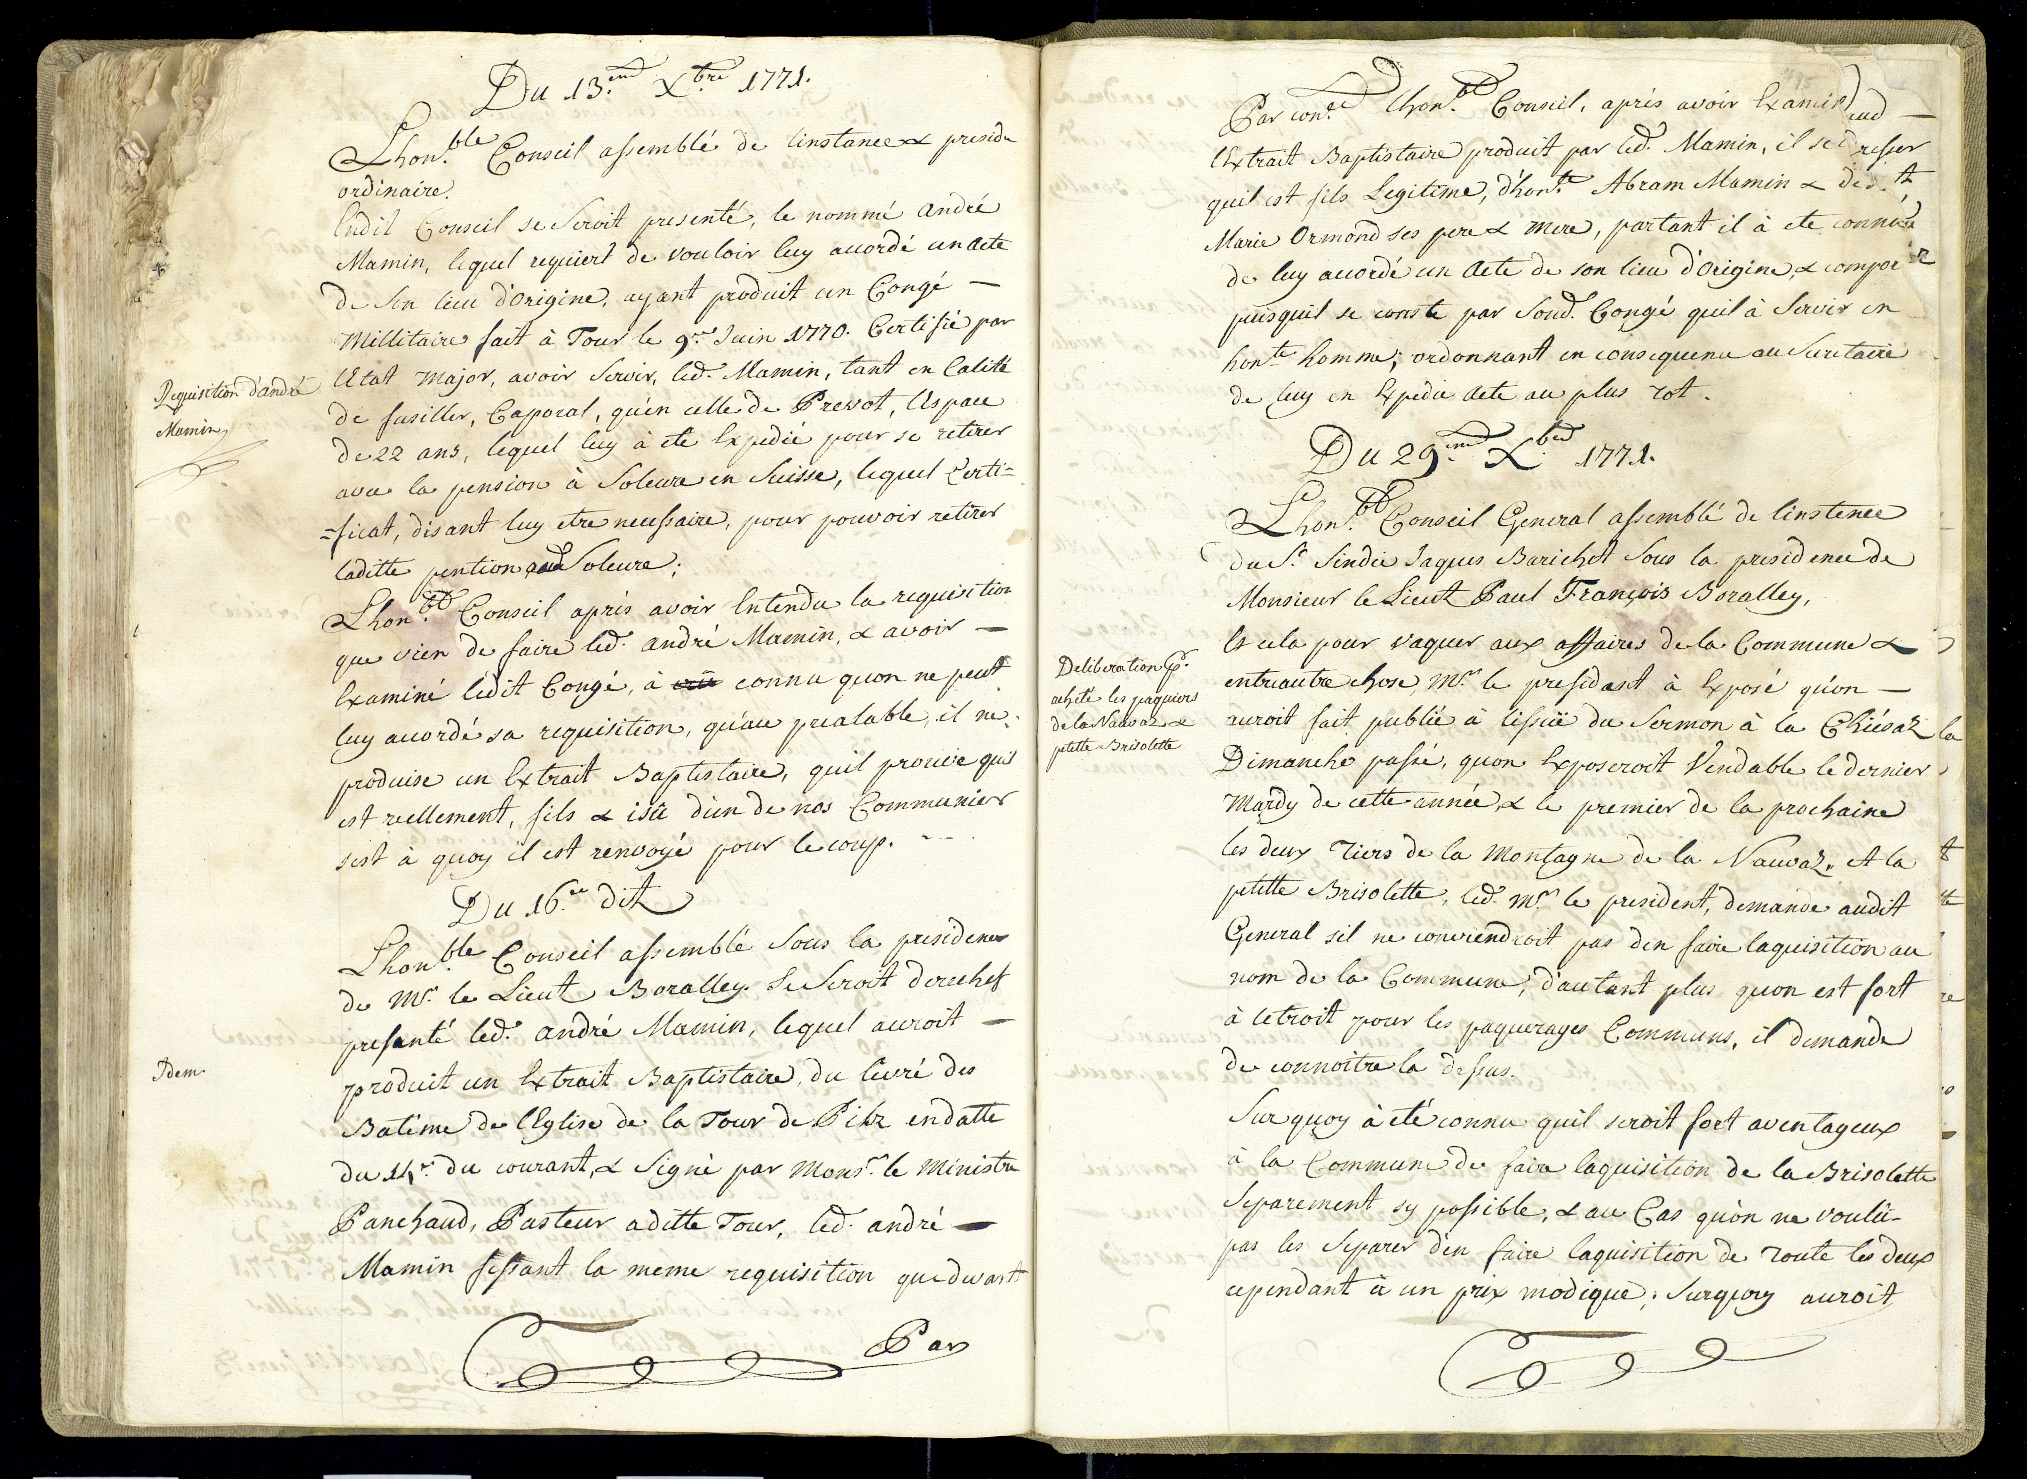 Du 13.eme Xbre 1771.
Lhon.ble Conseil assemblé de linstance & preside
ordinaire.
Endit Conseil se Seroit presenté, le nommé André
Mamin, lequel requiert de vouloir luy acordé un acte
de Son lieu d'Origine, ayant produit un Congé —
Millitaire fait à Tour le 9.me Juin 1770. Certifié par
Requisition d'andré
Mamin
l'Etat Major, avoir Servir, led. Mamin, tant en Calité
de fusiller, Caporal, qu'en celle de Prevot, l'Espace
de 22 ans, lequel luy à eté Expedié pour se retirer
avec la pension à Soleure en Suisse, lequel Certi=
=ficat, disant luy etre necessaire, pour pouvoir retirer
laditte pention aud Soleure;
Lhon.ble Conseil aprés avoir Entendu la requisition
que vien de faire led. andré Mamin, & avoir —
Examiné ledit Congé, à connu quon ne peut
luy accordé sa requisition, qu'au prealable, il ne
produise un Extrait Baptistaire, quil prouve quil
est reellement, fils & isû d'un de nos Communier
sest à quoy il est renvoyé pour le coup.
Du 16.me dit
Lhon.ble Conseil assemblé Sous la presidence
de Mr. le Lieut Boralley. Se Seroit derechef
presenté led. andré Mamin, lequel auroit —
Idem.
produit un Extrait Baptistaire, du livré des
Batême de l'Eglise de la Tour de Pilz en datte
du 14.e du courant, & Signé par Monsr. le Ministre
Panchaud, Pasteur aditte Tour, led. andré —
Mamin fessant la meme requisition que devant
Par
Par con.t Lhon.ble Conseil, aprés avoir Examiné led —
l'Extrait Baptistaire produit par led. Mamin, il se dresser
quil est fils Legitime, d'hon.te Abram Mamin &
Marie Ormond ses pere & mere, partant il à ete connu
de luy accordé un Acte de son lieu d'Origine, &
puisquil se conste par Sond. Congé quil à Servir en
hon.te homme; ordonnant en consequence au Secretaire
de luy en Expedié Acte au plus tot.
Du 29.eme Xbre 1771.
Lhon.ble Conseil General assemblé de linstence
du Sr. Sindic Jaques Barichet Sous la presidence de
Monsieur le Lieut Paul François Boralley,
Et cela pour vaquer aux affaires de la Commune &
Deliberation pr.
acheté les paquiers
de la Nauvaz &
petitte Brisolette
entreautre chose, Mr. le president à Exposé qu'on —
auroit fait publié à lissuë du Sermon à la Chiésaz
Dimanche passé, quon Exposeroit Vendable le dernier
Mardy de cette année, & le premier de la prochaine
les deux Tiers de la Montagne de la Nauvaz. Et la
petitte Brisolette, led. Mr. le president, demande audit
General sil ne conviendroit pas d'en faire laquisition au
nom de la Commune, d'autant plus quon est fort
à letroit pour les paquerages Communs, il demande
de connoitre la dessus.
Sur quoy à été connu quil seroit fort aventageux
à la Commune de faire laquisition de la Brisolette
Separement sy possible, & au Cas qu'on ne voulû
pas les Separer d'en faire laquisition de toute les deux
cependant à un prix modique; Surquoy auroit